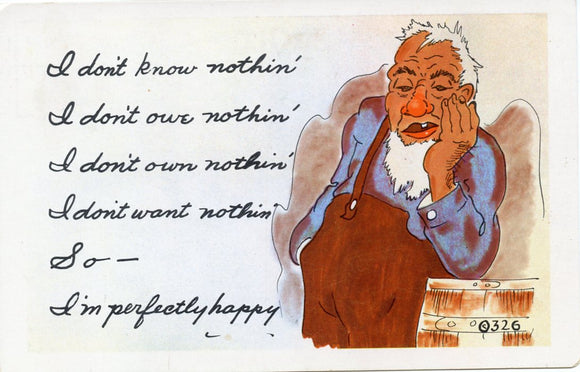 I don't know nothin'
I don't owe nothin'
I don't own nothin'
I don't want nothin'
So —
I'm perfectly happy
©326